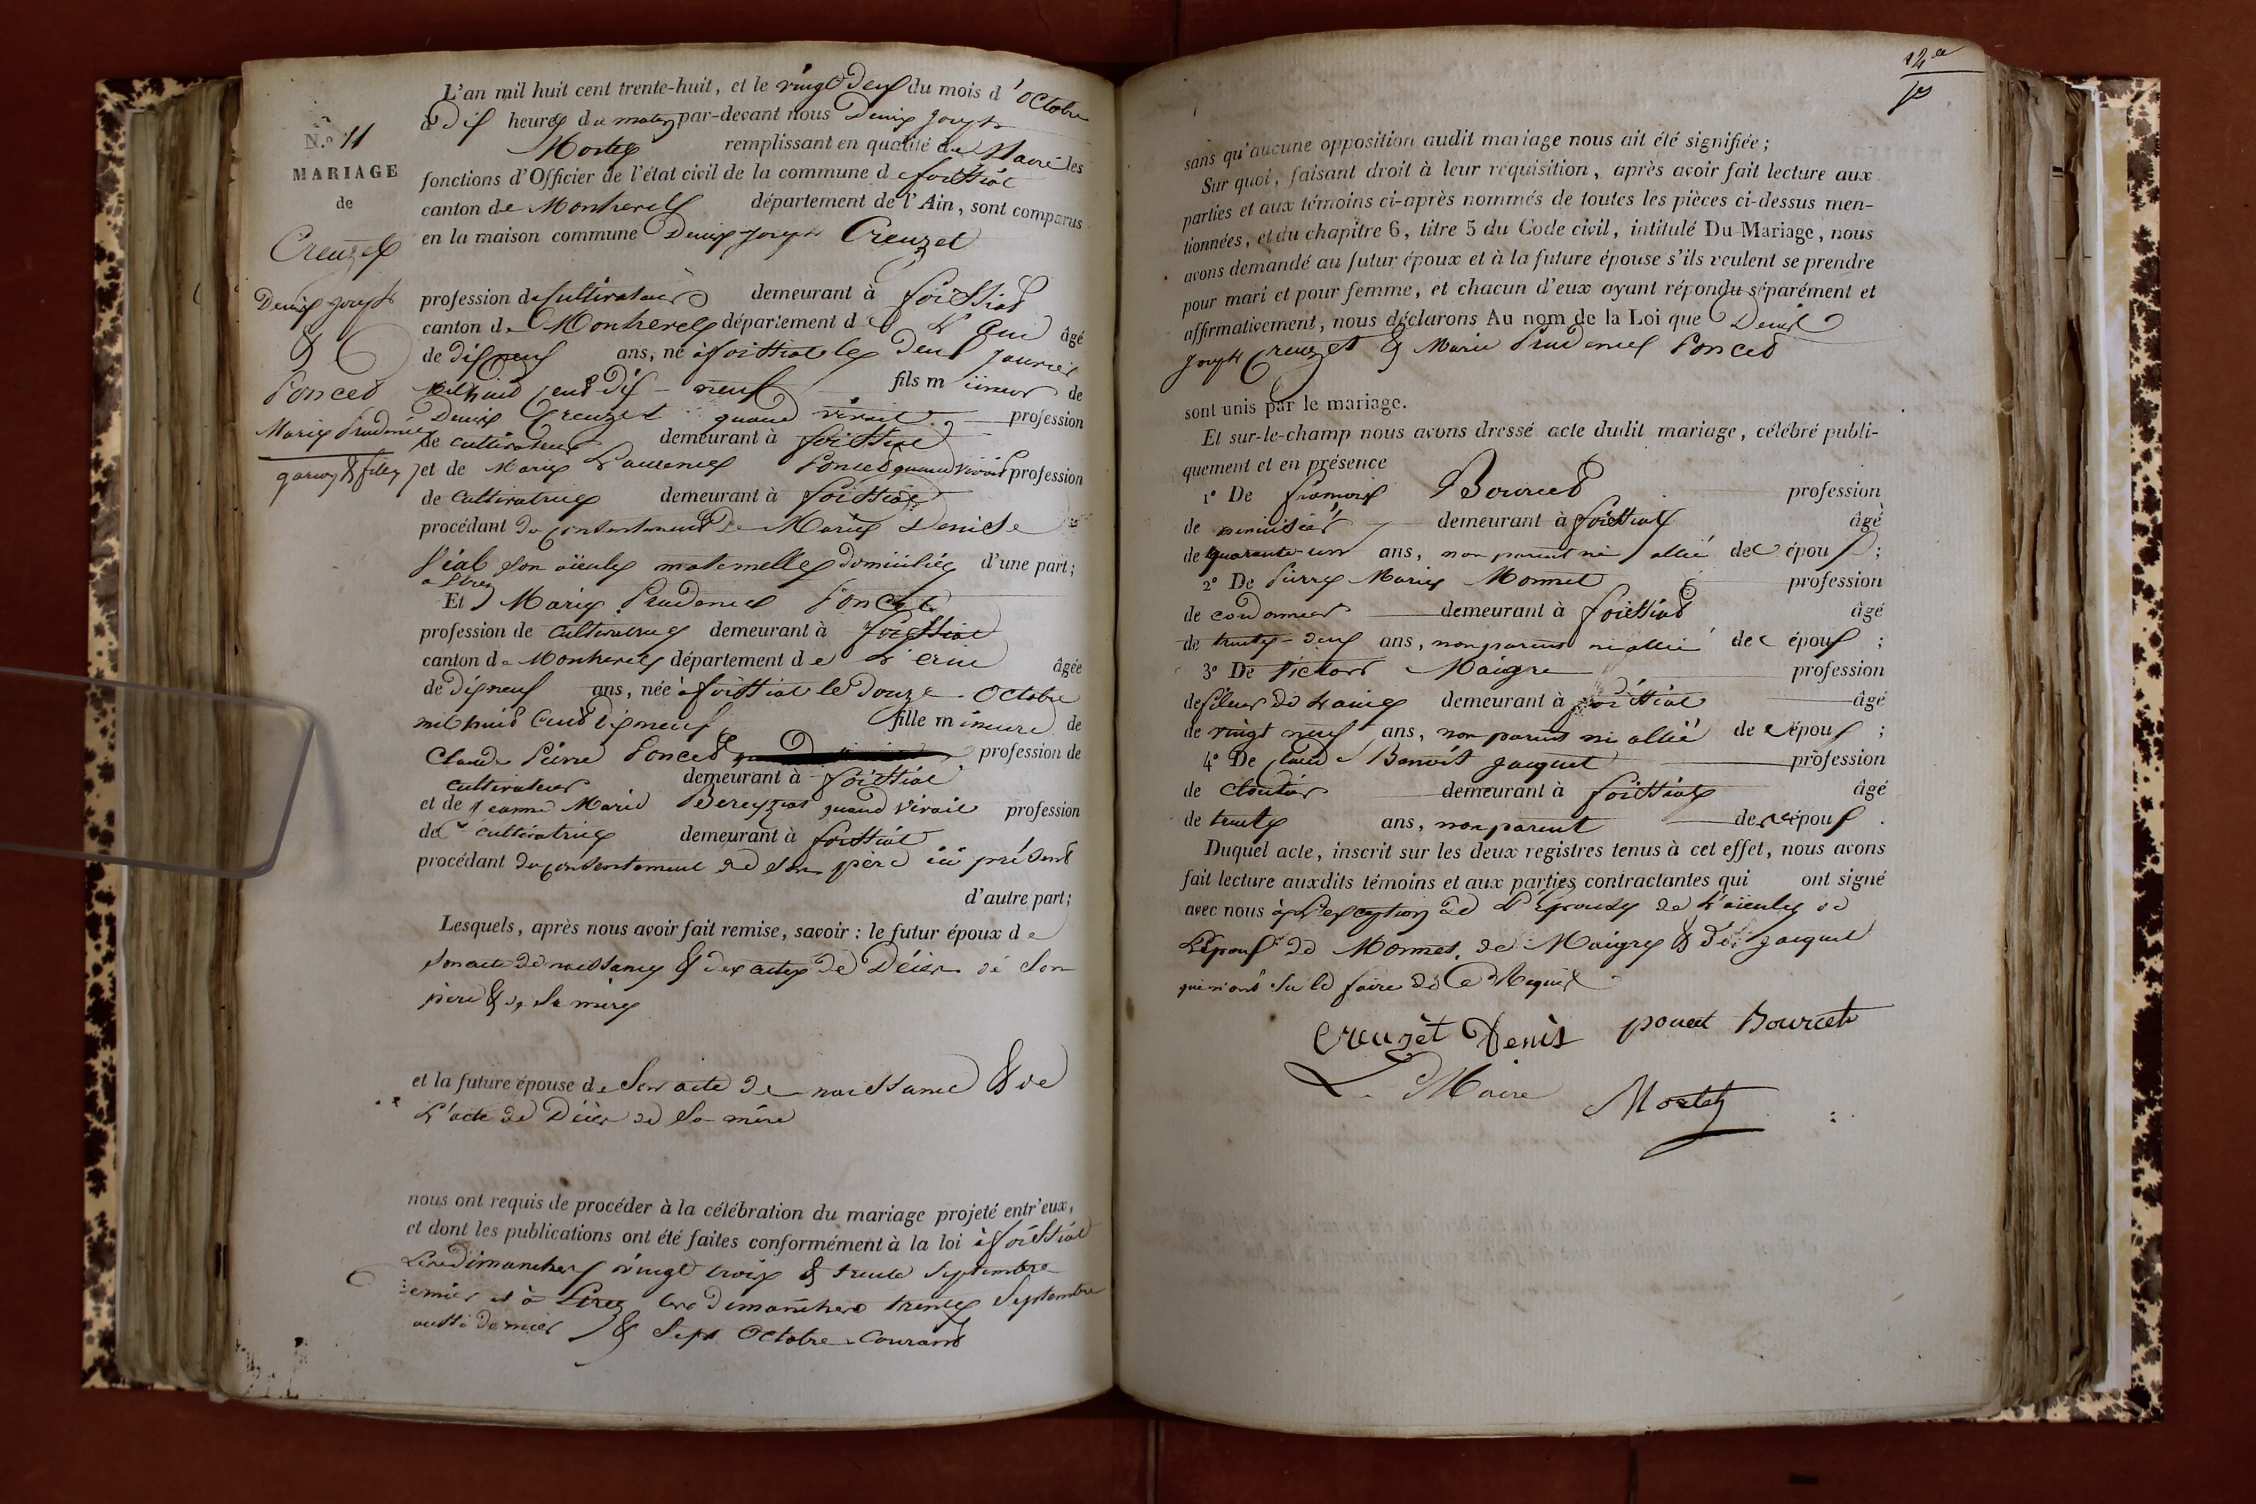 N.º 11
MARIAGE
de
Creuzet
Denis Joseph
&
Poncet
Marie Prudence
garçon & fille
L'an mil huit cent trente-huit, et le vingt deux du mois d'Octobre
à dix heures du matin par-devant nous Denis Joseph
Mortel remplissant en qualité de Maire les
fonctions d'Officier de l'état civil de la commune de foissiat
canton de Montrevel département de l'Ain, sont comparus
en la maison commune Denis Joseph Creuzet
profession de Cultivateur demeurant à foissiat
canton de Montrevel département de L'ain âgé
de dix neuf ans, né à foissiat le deux janvier
mil huit cent dix-neuf fils mineur de
Denis Creuzet quand vivait profession
de cultivateur demeurant à foissiat
et de Marie Laurence Poncet quand vivait profession
de cultivatrice demeurant à foissiat
procédant du consentement de Marie Denise
son aïeule maternelle domiciliée d'une part;
Et Marie Prudence Poncet
profession de cultivatrice demeurant à foissiat
canton de Montrevel département de L'ain âgée
de dix neuf ans, née à foissiat le douze Octobre
mil huit cent dix neuf fille mineure de
Claude Pierre Poncet profession de
cultivateur demeurant à foissiat
et de Jeanne Marie Bereyziat quand vivait profession
de cultivatrice demeurant à foissiat
procédant du consentement de son père ici présent
d'autre part;
Lesquels, après nous avoir fait remise, savoir : le futur époux de
son acte de naissance & des actes de Décès de son
père & de sa mère
et la future épouse de son acte de naissance & de
L'acte de Décès de sa mère
nous ont requis de procéder à la célébration du mariage projeté entr'eux,
et dont les publications ont été faites conformément à la loi à foissiat
Les dimanches vingt trois & trente septembre
dernier et à les dimanches trente septembre
aussi dernier & sept Octobre courant
sans qu'aucune opposition audit mariage nous ait été signifiée;
Sur quoi, faisant droit à leur réquisition, après avoir fait lecture aux
parties et aux témoins ci-après nommés de toutes les pièces ci-dessus men-
tionnées, et du chapitre 6, titre 5 du Code civil, intitulé Du Mariage, nous
avons demandé au futur époux et à la future épouse s'ils veulent se prendre
pour mari et pour femme, et chacun d'eux ayant répondu séparément et
affirmativement, nous déclarons Au nom de la Loi que Denis
Joseph Creuzet & Marie Prudence Poncet
sont unis par le mariage.
Et sur-le-champ nous avons dressé acte dudit mariage, célébré publi-
quement et en présence
1º De françois Bourcet profession
de menuisier demeurant à foissiat âgé
de quarante-un ans, non parent ni allié des époux;
2º De Pierre Marie Monnet profession
de cordonnier demeurant à foissiat âgé
de trente-deux ans, non parent ni allié des époux;
3º De Victor Maigre profession
de fileur de Laine demeurant à foissiat âgé
de vingt neuf ans, non parent ni allié des époux;
4º De Claude Benoit Jacquet profession
de cloutier demeurant à foissiat âgé
de trente ans, non parent des époux.
Duquel acte, inscrit sur les deux registres tenus à cet effet, nous avons
fait lecture auxdits témoins et aux parties contractantes qui ont signé
avec nous à L'exception de L'épouse de L'aieule de
L'époux de Monnet, de Maigre & de Jacquet
qui n'ont su le faire de ce Requis
Creuzèt Denis poncet Bourcet
Le Maire Mortel